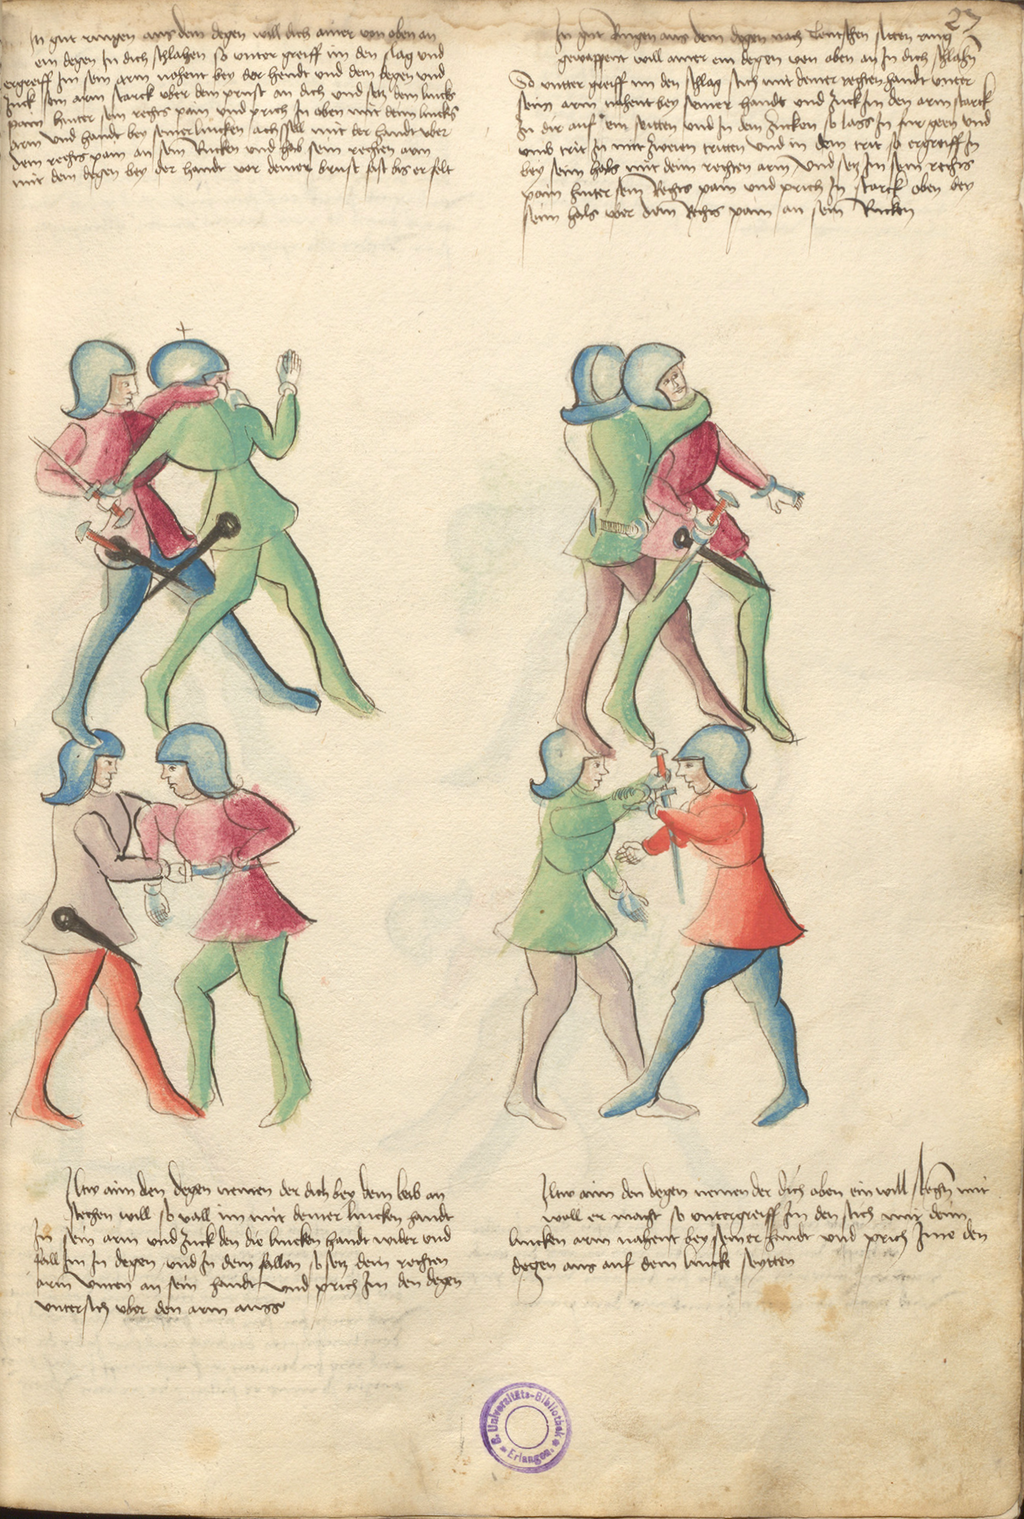 27
Jn gut ringen aus dem degen will dich ainer von oben an
ein degen Jn dich schlahen so unter greiff im den slag und
ergreiff Jm sein arm nohent bey der hendt und dem degen und
Zuck sein arm starck uber dem prust an dich und setz dein lincks
pain hinter sein rechts pain und prich Jn oben mit deim lincks
arm und handt bey seiner lincken achssell mit der handt uber
dem rechts pain an sein Rucken und hab sein rechten arm
mit dem degen bey der handt vor deiner brust fast bis er felt
Jn gut Ringen aus dem degen nach sitten ring
gewappent woll ainer ein degen von oben an Jn dich schlahn
So untter greiff im den schlag sich mit deiner rechten handt unter
seim arm nahent bey seiner handt und Zuck Jm den arm starck
Zu dir auf ein seitten und Jn den Zucken so lass Jn fur geen und
umb trit Jn mit Zweien tritten und in dem trit so ergreiff Jn
bey seim hals mit deim rechten arm und setz Jn sein rechts
pain hinter sein Rechts pain und prich Jn starck oben bey
seim hals uber dein Rechts pain an sein Rucken
Jltw aim den degen nemen der dich bey dem leib an
stechen will so vall im mit deiner lincken handt
Jn sein arm und Zuck den die lincken handt wider und
fall Jm Jn degen und Jn dem fallen so setz dein rechten
arm unten an sein handt und prich Jm den degen
untersich uber den arm auss
Jltw aim den degen nemen der dich oben ein will stechn mit
woll er macht so untergreiff Jm den stich mit deim
lincken arm nahent bey seiner handt und prich Jme den
degen aus auf dein lincke seytten
K. Universitäts-Bibliothek
Erlangen